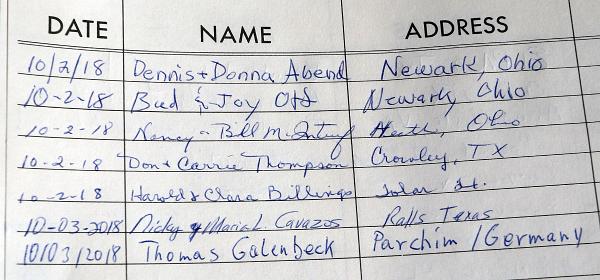 DATE NAME ADDRESS
10/2/18 Dennis + Donna Abend Newark, Ohio
10-2-18 Bud & Joy Ott Newark, Ohio
10-2-18 Nancy - Bill Heath, Ohio
10-2-18 Don + Carrie Thompson Crowley, TX
10-2-18 Harold & Clara Billings
10-03-2018 Nicky y Maria L. Cavazos Ralls Texas
10/03/2018 Thomas Galenbeck Parchim / Germany